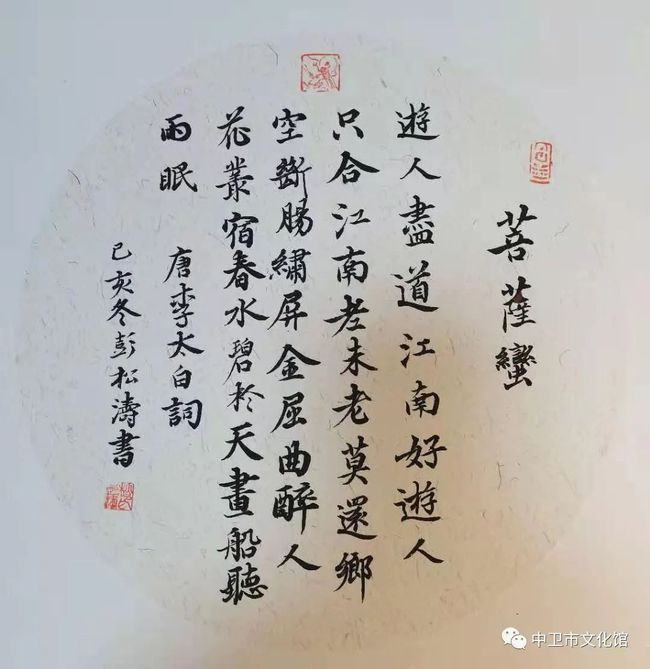 菩薩蠻
遊人盡道江南好遊人
只合江南老未老莫還鄉
空斷腸繡屏金屈曲醉人
花叢宿春水碧於天畫船聽
雨眠
唐李太白詞
己亥冬彭松濤書
中卫市文化馆